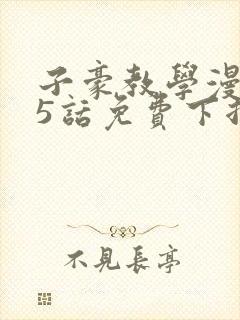 子豪教學漫
5話免費下拉
不見長亭